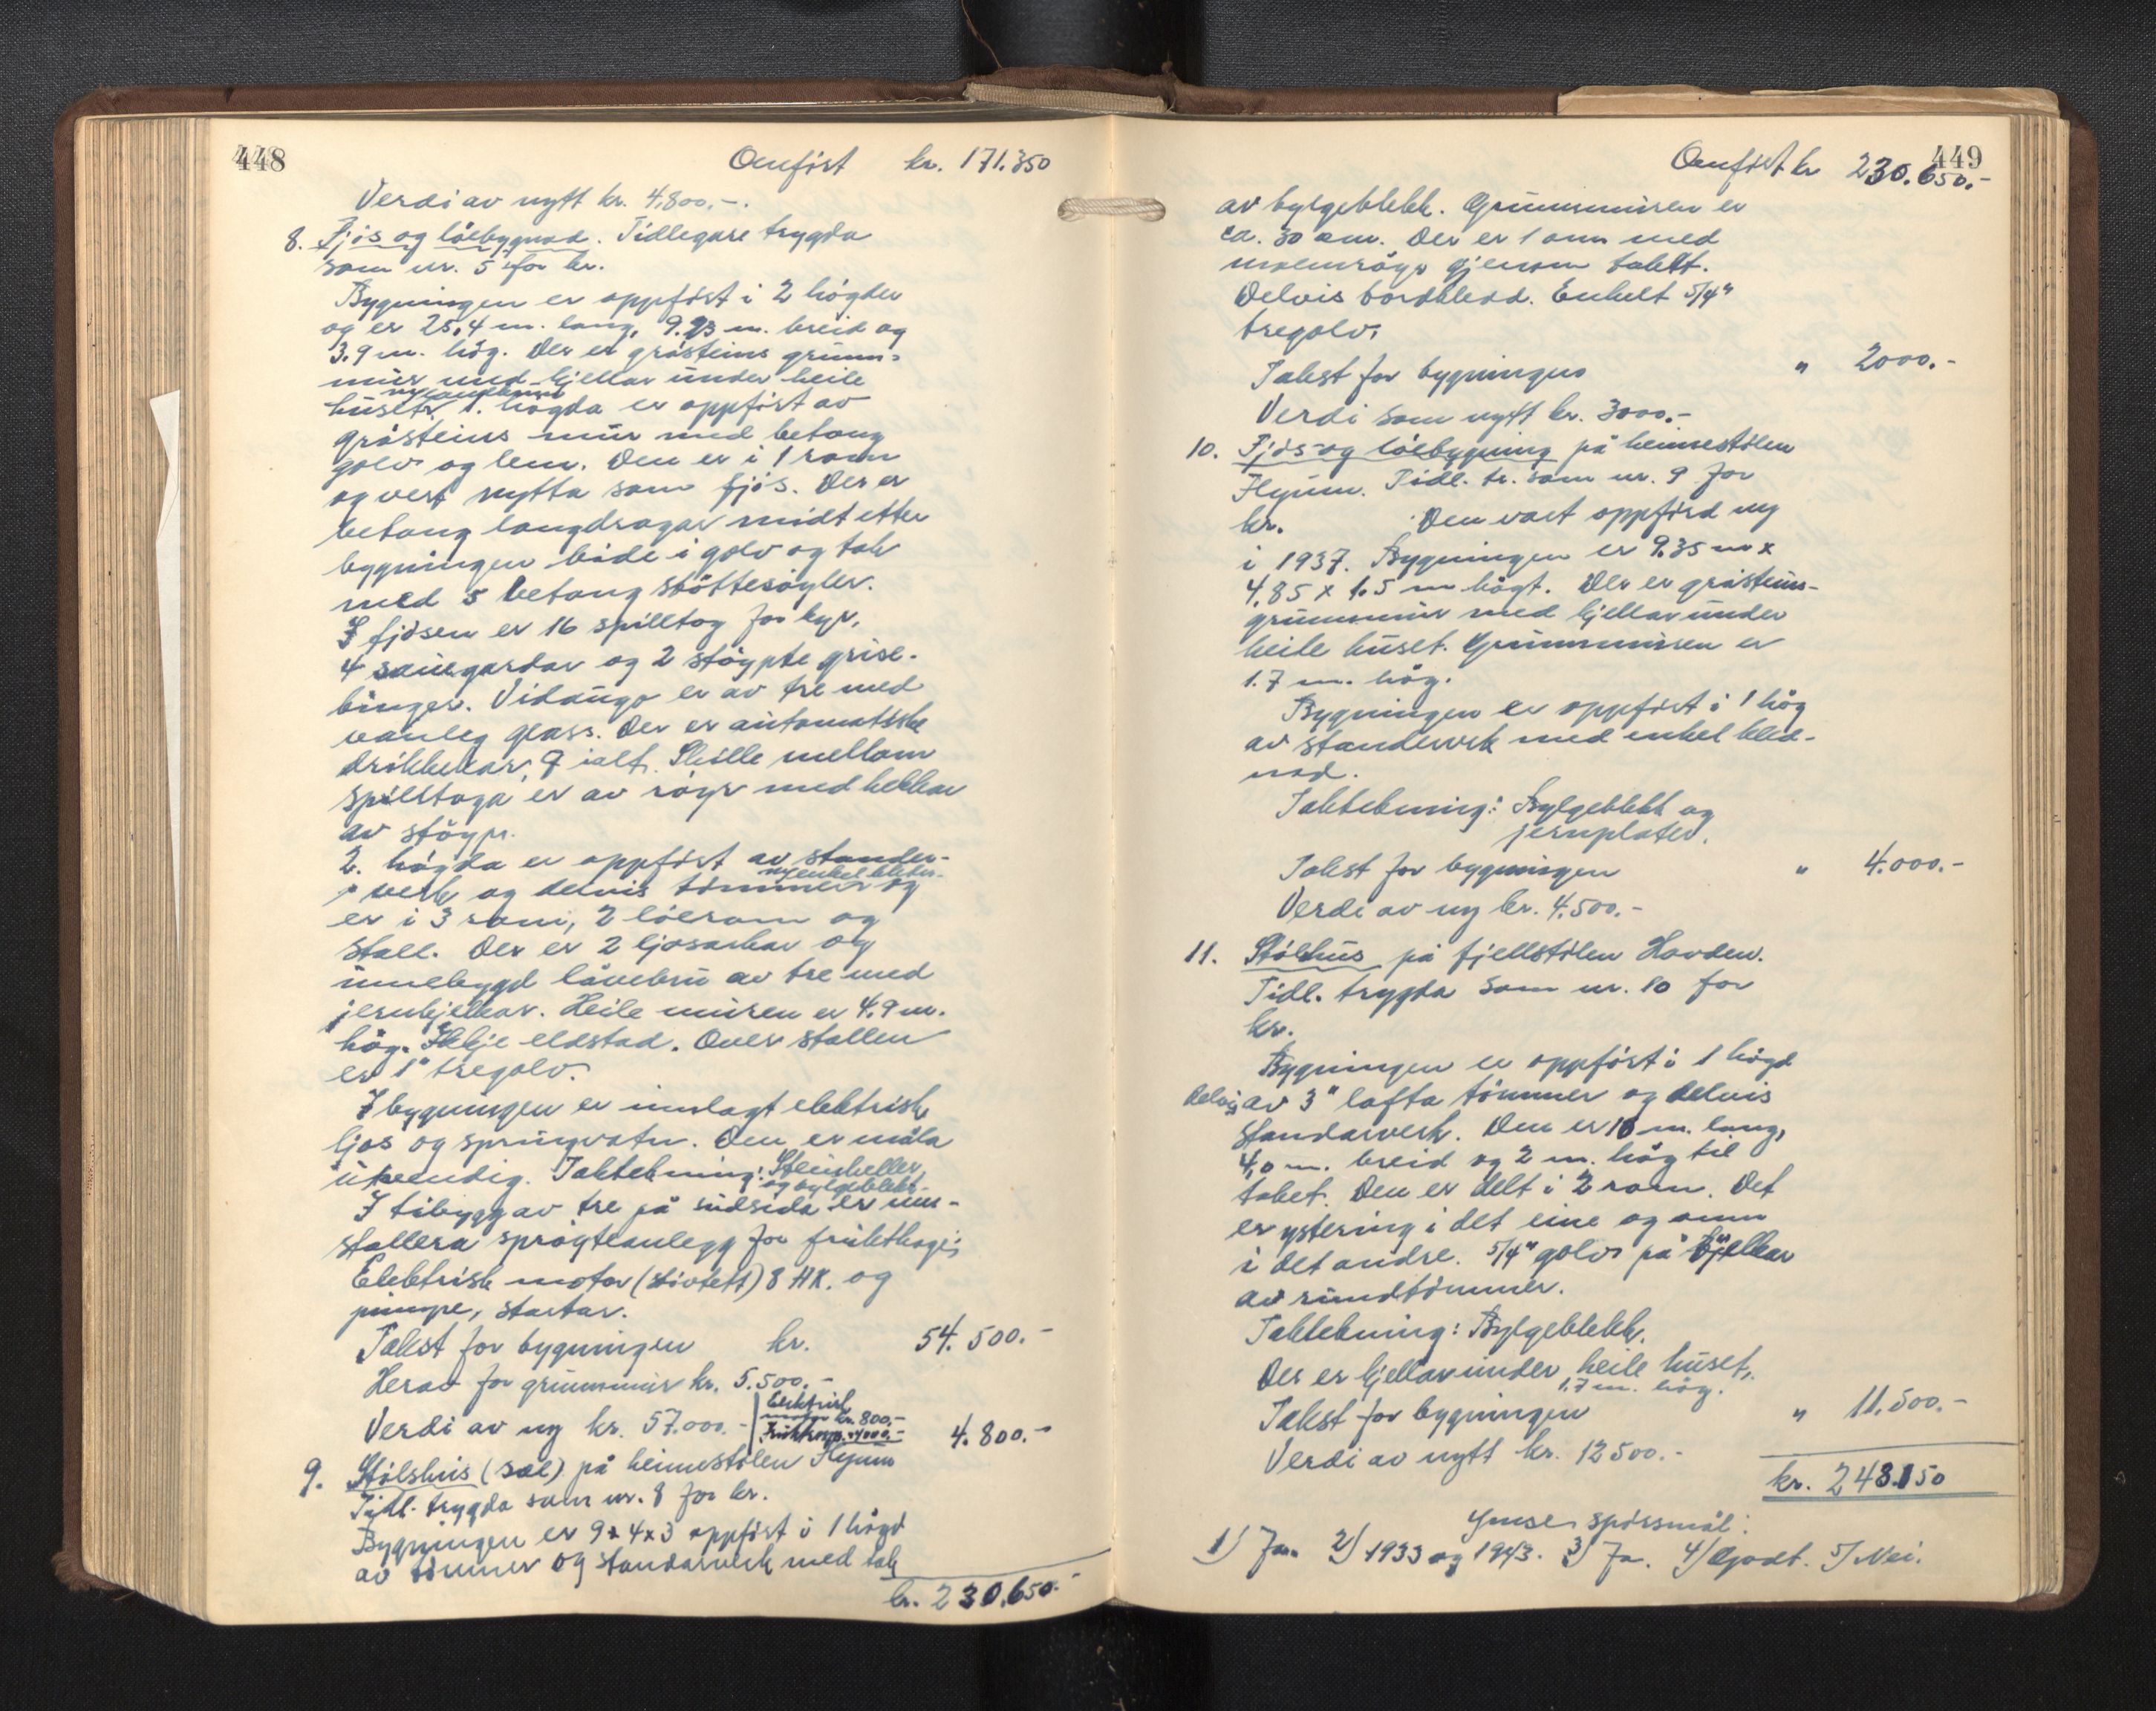 448
Omført kr. 171.350
Verdi av nytt kr. 4.800,-.
8. Fjos og løebygnad. Tidlegare trygda
som nr. 5 for kr.
Bygningen er oppført i 2 høgder
og er 25,4 m. lang, 9.23 m. breid og
3.9 m. høg. Der er gråsteins grunn-
mur med kjellar under heile
huset. 1. høgda er oppført av
gråsteins mur med betong
golv og lem. Den er i 1 rom
og vert nytta som fjós. Der er
betong langdragar midt etter
bygningen både i golv og tak
med 5 betong støttesøyler.
I fjósen er 16 spilltog for kyr,
4 sauegardar og 2 støypte grise-
binger. Vidaugo er av tre med
vanleg glass. Der er automatiske
drikkekar, 9 ialt. Skille mellom
spilltoga er av røyr med bekkar
av støyp.
2. høgda er oppført av stander-
verk og delvis tømmer og
er i 3 rom, 2 løerom og
stall. Der er 2 ljosarkar og
innebygd låvebru av tre med
jernbjelkar. Heile muren er 4.9 m.
høg. Ikkje eldstad. Over stallen
er 1" tregolv.
I bygningen er innlagt elektrisk
ljos og springvatn. Den er måla
utvendig. Taktekning: Steinheller
og bylgeblekk.
I tilbygg av tre på sudsida er inn-
stallera sprøyteanlegg for frukthage;
Elektrisk motor 8 HK. og
pumpe, startar.
Takst for bygningen kr. 54.500.-
Herav for grunnmur kr. 5.500.-
Verdi av ny kr. 57.000.-
Elektrisk
motor kr. 800,-
4000.-
4.800.-
9. Stølshus (sæl) på heimestølen Flynn
Tidl. trygda som nr. 8 for kr.
Bygningen er 9x4x3 oppført i 1 høgd
av tømmer og standarverk med tak
kr. 230.650.-
449
Omført kr 230.650.-
av bylgeblekk. Grunnmuren er
ca. 30 cm. Der er 1 omn med
gjenom taket.
Delvis bordkledd. Enkelt 5/4"
tregolv.
Takst for bygningen " 2000.-
Verdi som nytt kr. 3000.-
10. Fjós og løebygning på heimestølen
Flynn. Tidl. tr. som nr. 9 for
kr. Den vart oppförd ny
i 1937. Bygningen er 9.35 m x
4,85 x 1.5 m høgt. Der er gråsteins-
grunnmur med kjellar under
heile huset. Grunnmuren er
1.7 m. høg.
Bygningen er oppført i 1 høg
av standerverk med enkel kled-
nad.
Taktekning: Bylgeblekk og
jernplater.
Takst for bygningen " 4.000.-
Verdi av ny kr. 4.500.-
11. Stølshus på fjellstølen Hovden.
Tidl. trygda som nr. 10 for
kr.
Bygningen er oppført i 1 høgd
delvis av 3" lafta tømmer og delvis
standarverk. Den er 10 m. lang,
4,0 m. breid og 2 m. høg til
taket. Den er delt i 2 rom. Det
er ystering i det eine og omn
i det andre. 5/4" golv på bjelkar
av rundtømmer.
Taktekning: Bylgeblekk.
Der er kjellar under heile huset,
1,7 m. høg.
Takst for bygningen " 11.500.-
Verdi av nytt kr. 12500.-
kr. 248.150
Ymse spørsmål:
1) Ja. 2) 1933 og 1943. 3) Ja. 4) Godt. 5) Nei.